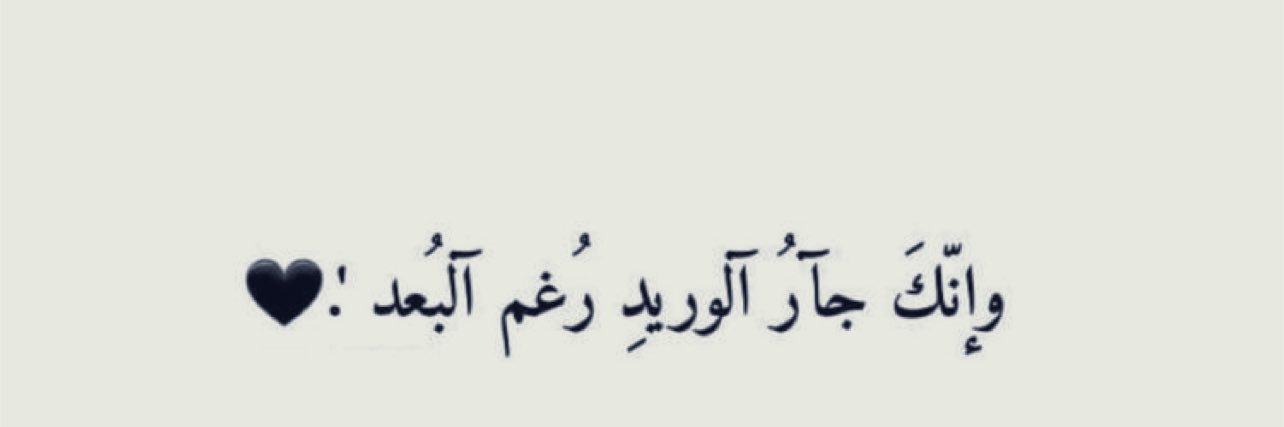 وإنّكَ جآرُ آلوريدِ رُغم آلبُعد '.🖤